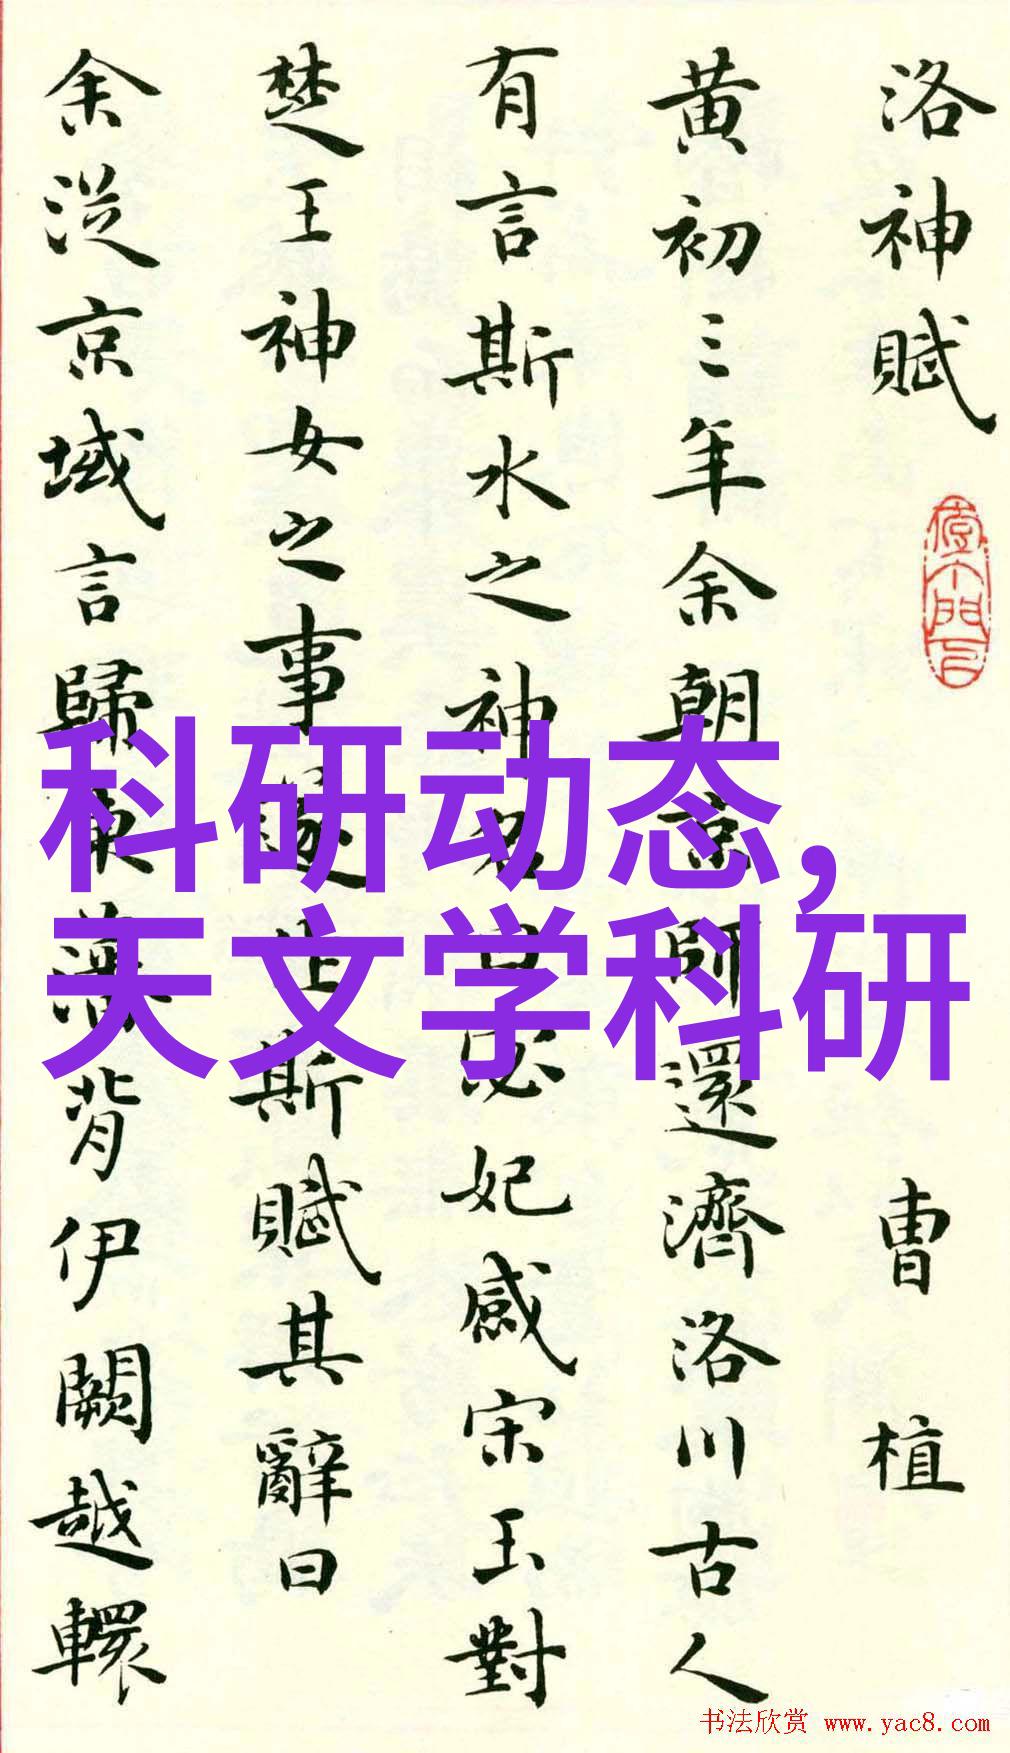 洛神賦
曹植
黃初三年余朝京師還濟洛川古人
有言斯水之神名曰宓妃感宋玉對
楚王神女之事遂作斯賦其辭曰
余從京域言歸東藩背伊闕越轘
科研动态,
天文学科研
书法欣赏 www.yac8.com